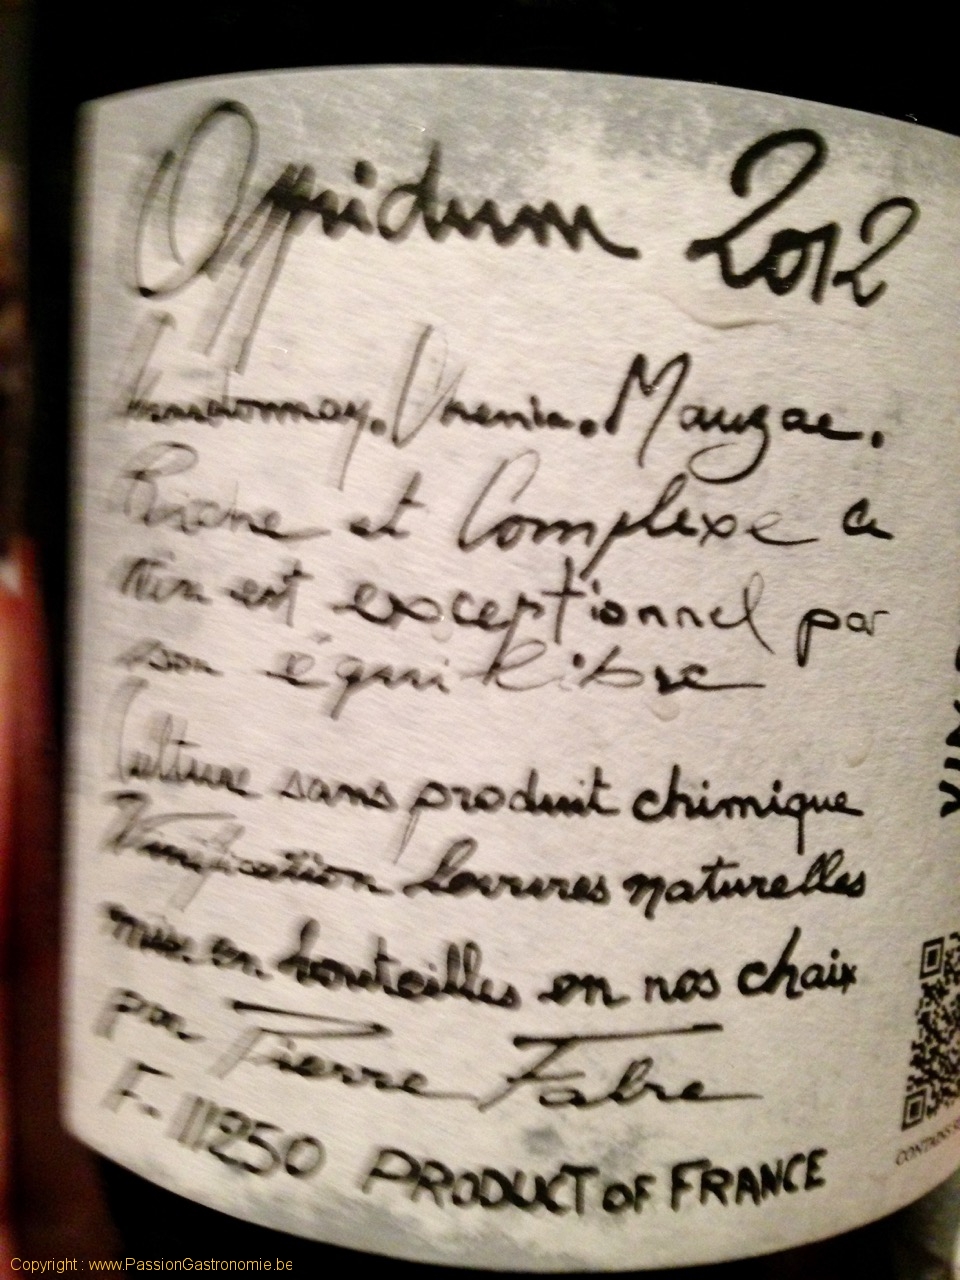 Oppidum 2012
Chardonnay. Chenin. Mauzac.
Riche et Complexe ce
vin est exceptionnel par
son équilibre
Culture sans produit chimique
Vinification levures naturelles
mis en bouteilles en nos chaix
par Pierre Fabre
F. 11250 PRODUCT OF FRANCE
CONTAINS
Copyright : www.PassionGastronomie.be